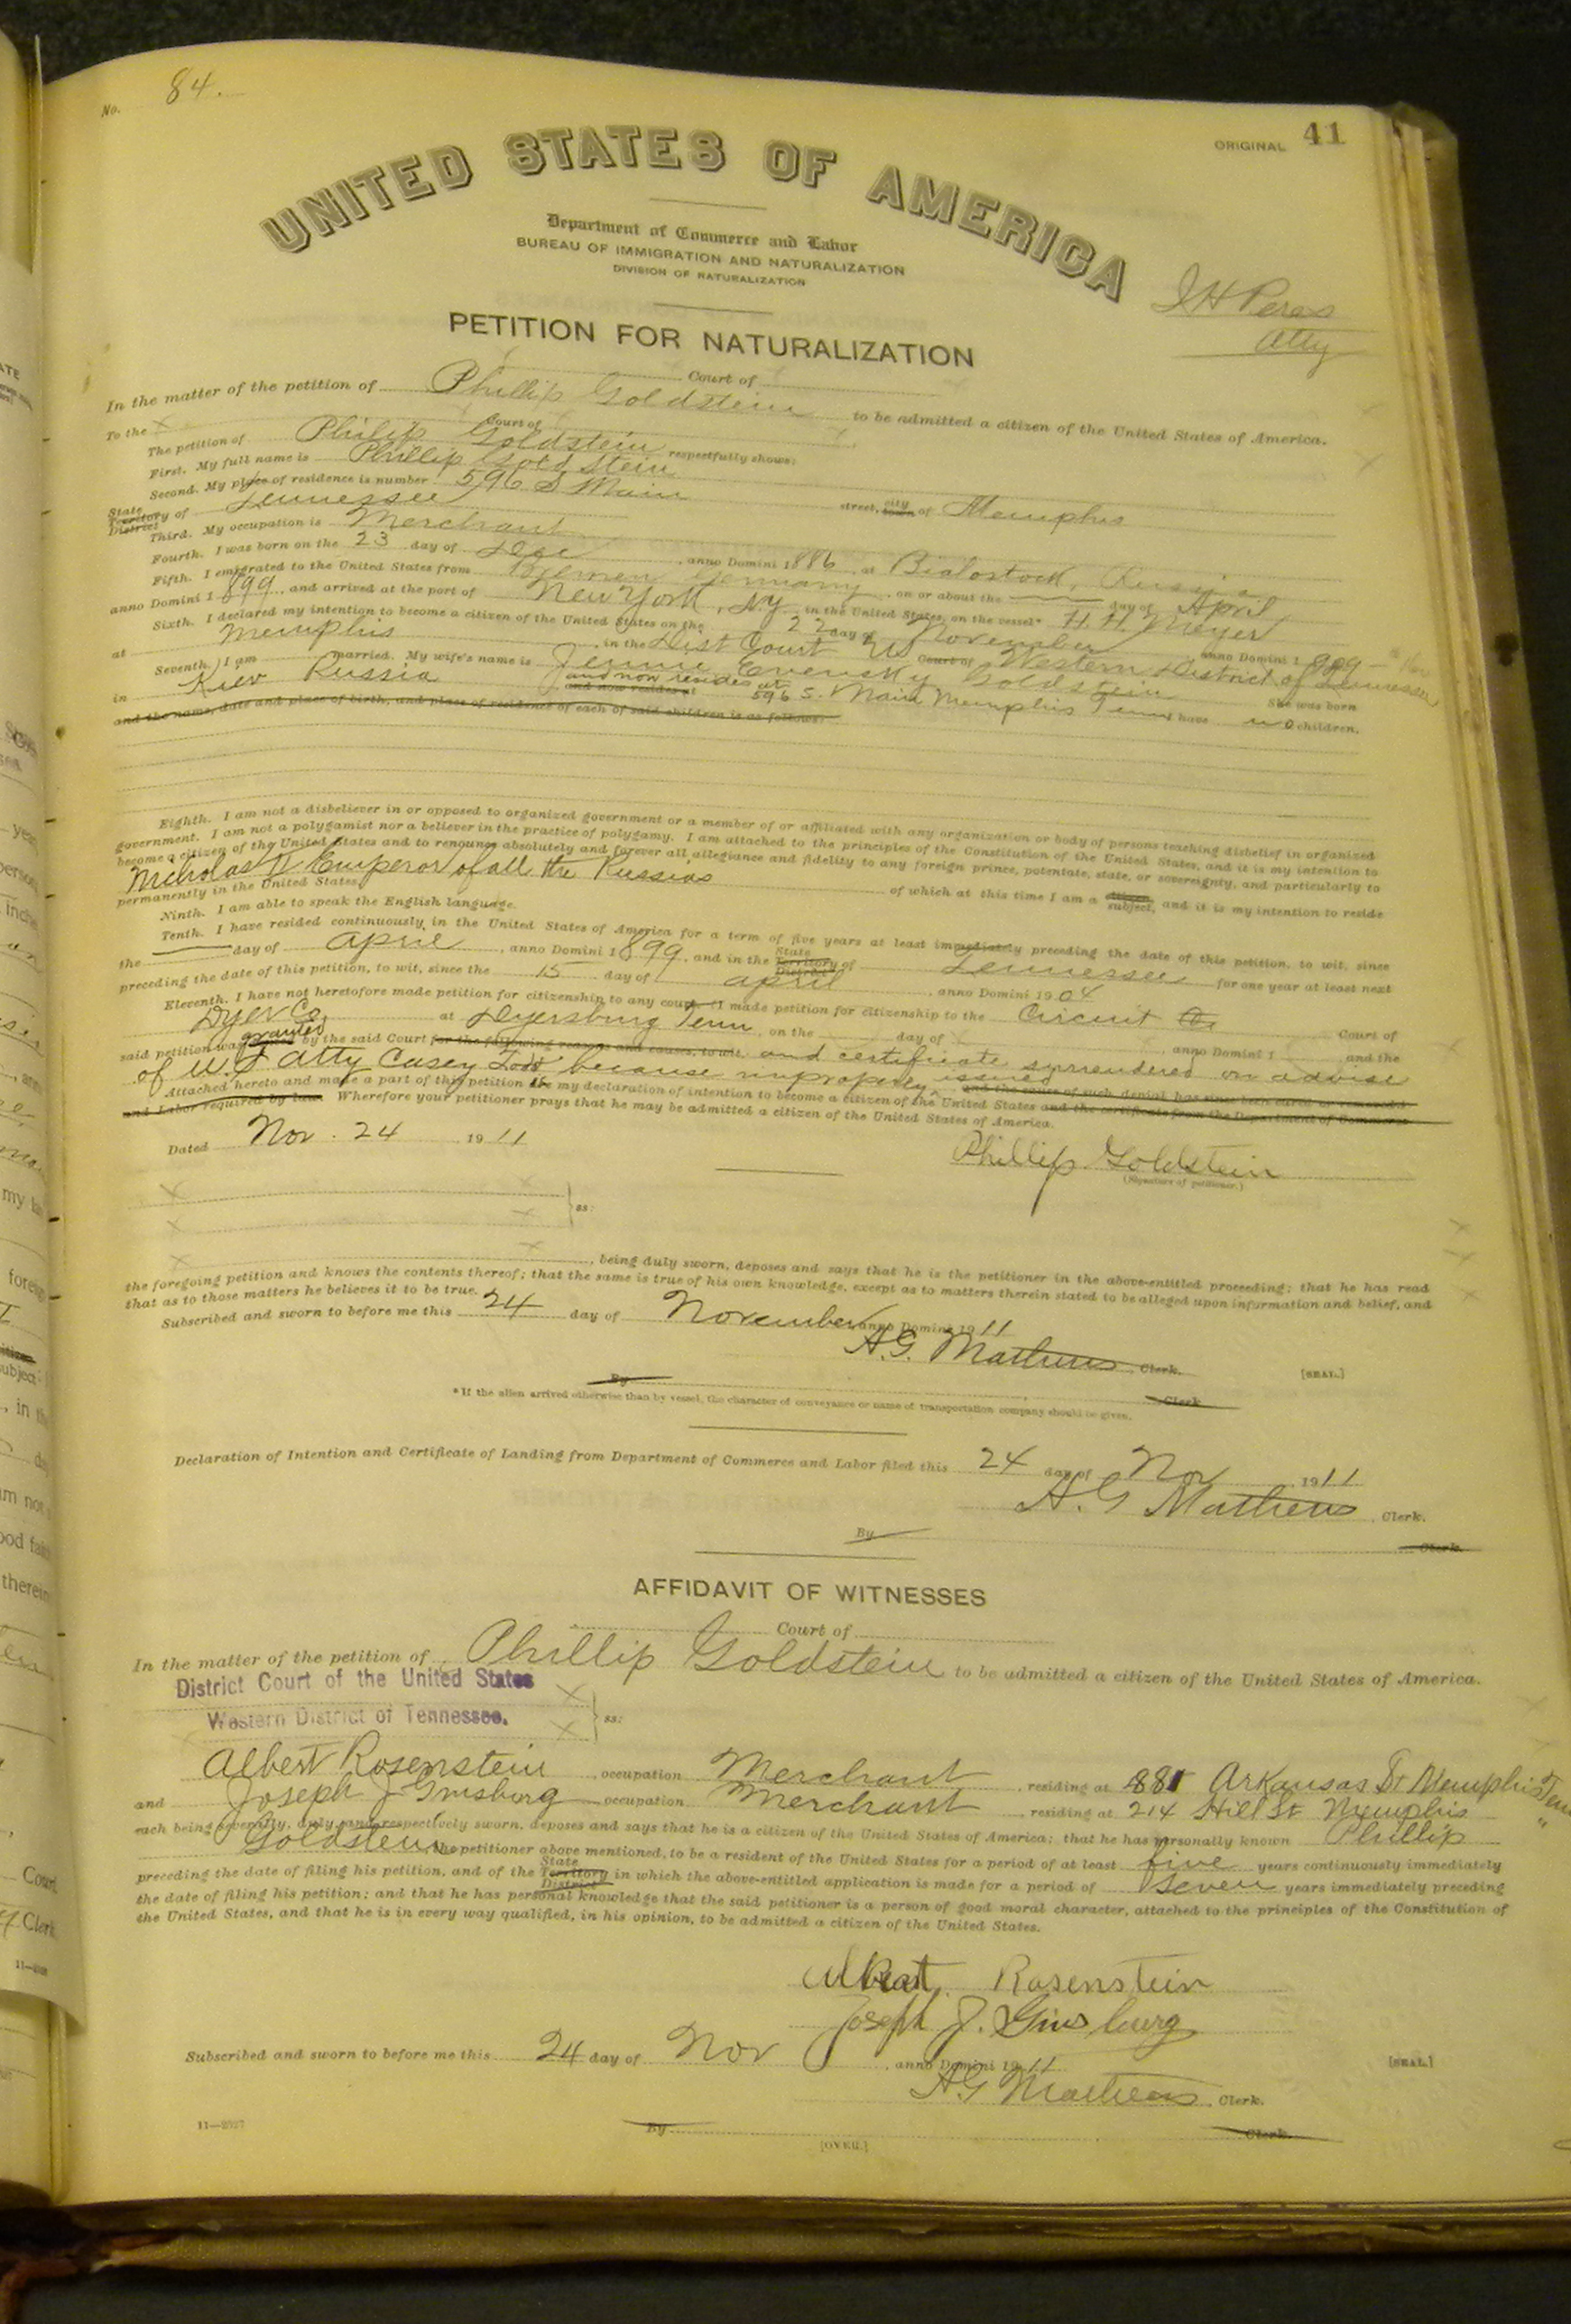 No. 84.
ORIGINAL 41
UNITED STATES OF AMERICA
Department of Commerce and Labor
BUREAU OF IMMIGRATION AND NATURALIZATION
DIVISION OF NATURALIZATION
I H Peres
Atty
PETITION FOR NATURALIZATION
Court of
In the matter of the petition of Phillip Goldstein to be admitted a citizen of the United States of America.
To the Court of
The petition of Philip Goldstein respectfully shows:
First. My full name is Phillip Gold Stein
Second. My place of residence is number 596 S Main street, city town of Memphis
State Territory District of Tennessee
Third. My occupation is Merchant
Fourth. I was born on the 23 day of Dec, anno Domini 1886, at Bialostock, Russia.
Fifth. I emigrated to the United States from Bremen Germany, on or about the day of April
anno Domini 1899, and arrived at the port of New York, NY in the United States, on the vessel* H. H. Meyer
Sixth. I declared my intention to become a citizen of the United States on the 22 day of November anno Domini 1909
at Memphis in the Dist Court US Court of Western District of Tennessee
Seventh. I am married. My wife's name is Jennie Goldstein She was born
in Kiev Russia and now resides at and now resides at 596 S. Main Memphis Tenn I have no children,
and the name, date and place of birth, and place of residence of each of said children is as follows:
Eighth. I am not a disbeliever in or opposed to organized government or a member of or affiliated with any organization or body of persons teaching disbelief in organized
government. I am not a polygamist nor a believer in the practice of polygamy. I am attached to the principles of the Constitution of the United States, and it is my intention to
become a citizen of the United States and to renounce absolutely and forever all allegiance and fidelity to any foreign prince, potentate, state, or sovereignty, and particularly to
Nicholas II Emperor of all the Russias of which at this time I am a citizen subject, and it is my intention to reside
permanently in the United States.
Ninth. I am able to speak the English language.
Tenth. I have resided continuously in the United States of America for a term of five years at least immediately preceding the date of this petition, to wit, since
the day of April, anno Domini 1899, and in the State Territory District of Tennessee for one year at least next
preceding the date of this petition, to wit, since the 15 day of April, anno Domini 1904
Eleventh. I have not heretofore made petition for citizenship to any court. (I made petition for citizenship to the Circuit Court of
Dyer Co. at Dyersburg Tenn, on the day of, anno Domini 1 and the
said petition was granted by the said Court for the following reasons and causes, to wit, and certificate surrendered on advise
of U.S Atty Casey Todd because improperly issued and the cause of such denial has since been cured or removed.
Attached hereto and made a part of this petition is my declaration of intention to become a citizen of the United States and the certificate from the Department of Commerce
and Labor required by law. Wherefore your petitioner prays that he may be admitted a citizen of the United States of America.
Dated Nov. 24 1911
Phillip Goldstein
(Signature of petitioner.)
ss:
, being duly sworn, deposes and says that he is the petitioner in the above-entitled proceeding; that he has read
the foregoing petition and knows the contents thereof; that the same is true of his own knowledge, except as to matters therein stated to be alleged upon information and belief, and
that as to those matters he believes it to be true.
Subscribed and sworn to before me this 24 day of November anno Domini 1911
A.G. Mathews Clerk.
[SEAL.]
By Clerk
*If the alien arrived otherwise than by vessel, the character of conveyance or name of transportation company should be given.
Declaration of Intention and Certificate of Landing from Department of Commerce and Labor filed this 24 day of Nov 1911
A. G Mathews, Clerk.
By Clerk.
AFFIDAVIT OF WITNESSES
Court of
In the matter of the petition of Phillip Goldstein to be admitted a citizen of the United States of America.
District Court of the United States
Western District of Tennessee.
ss:
Albert Rosenstein, occupation Merchant, residing at 881 Arkansas St Memphis Tenn
and Joseph J Ginsburg occupation Merchant, residing at 214 Hill St Memphis "
each being severally, duly and respectively sworn, deposes and says that he is a citizen of the United States of America; that he has personally known Phillip
Goldstein, the petitioner above mentioned, to be a resident of the United States for a period of at least five years continuously immediately
preceding the date of filing his petition, and of the State Territory District in which the above-entitled application is made for a period of seven years immediately preceding
the date of filing his petition; and that he has personal knowledge that the said petitioner is a person of good moral character, attached to the principles of the Constitution of
the United States, and that he is in every way qualified, in his opinion, to be admitted a citizen of the United States.
Albert Rosenstein
Joseph J. Ginsburg
Subscribed and sworn to before me this 24 day of Nov, anno Domini 1911
[SEAL.]
A G Mathews, Clerk.
11—2027
By Clerk.
[OVER.]